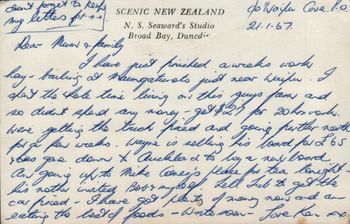 Don't forget to keep
my letters for me
SCENIC NEW ZEALAND
N. S. Seaward's Studio
Broad Bay, Dunedin
c/o Waipu Cove P.O.
21-1-67.
Dear Mum & family
I have just finished a weeks work
hay-bailing at Maungaturoto just near Waipu. I
spent the whole time living on this guys farm and
so didnt spend any money - got $25 for 20 hrs work.
Were getting the truck fixed and going further north
for a few weeks. Wayne is selling his board for £65
& has gone down to Auckland to buy a new board.
Am going up to Mike place for tea tonight -
his mother invited Bob & myself. Tell Jub to get the
car fixed - I have got plenty of money now and am
eating the best of foods - Write soon - Love